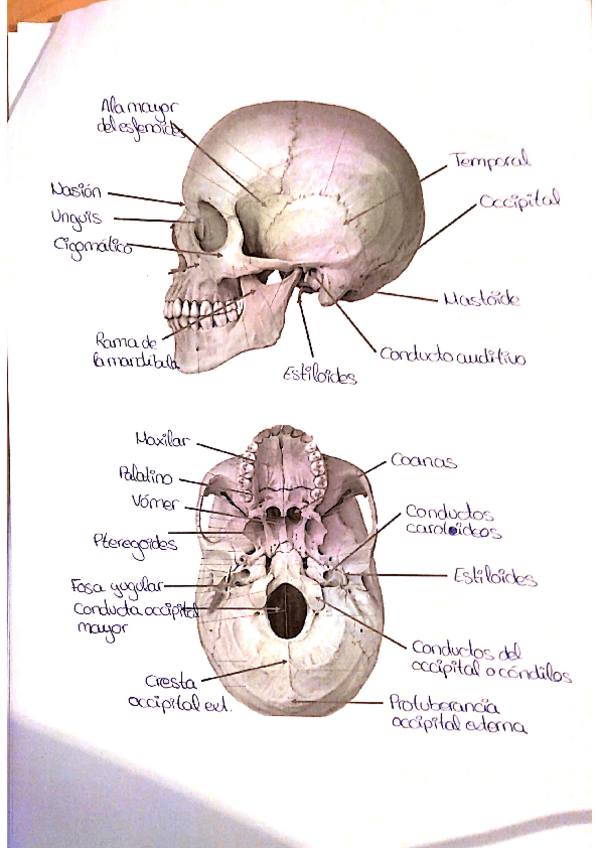 Ala mayor
del esfenoides
Temporal
Nasión
Occipital
Unguis
Cigomático
Mastóide
Rama de
la mandíbula
Conducto auditivo
Estiloides
Maxilar
Coanas
Palatino
Vómer
Conductos
carotídeos
Pteregoides
Estiloides
Fosa yugular
Conducta occipital
mayor
Conductos del
occipital o cóndilos
Cresta
occipital ext.
Protuberancia
occipital externa